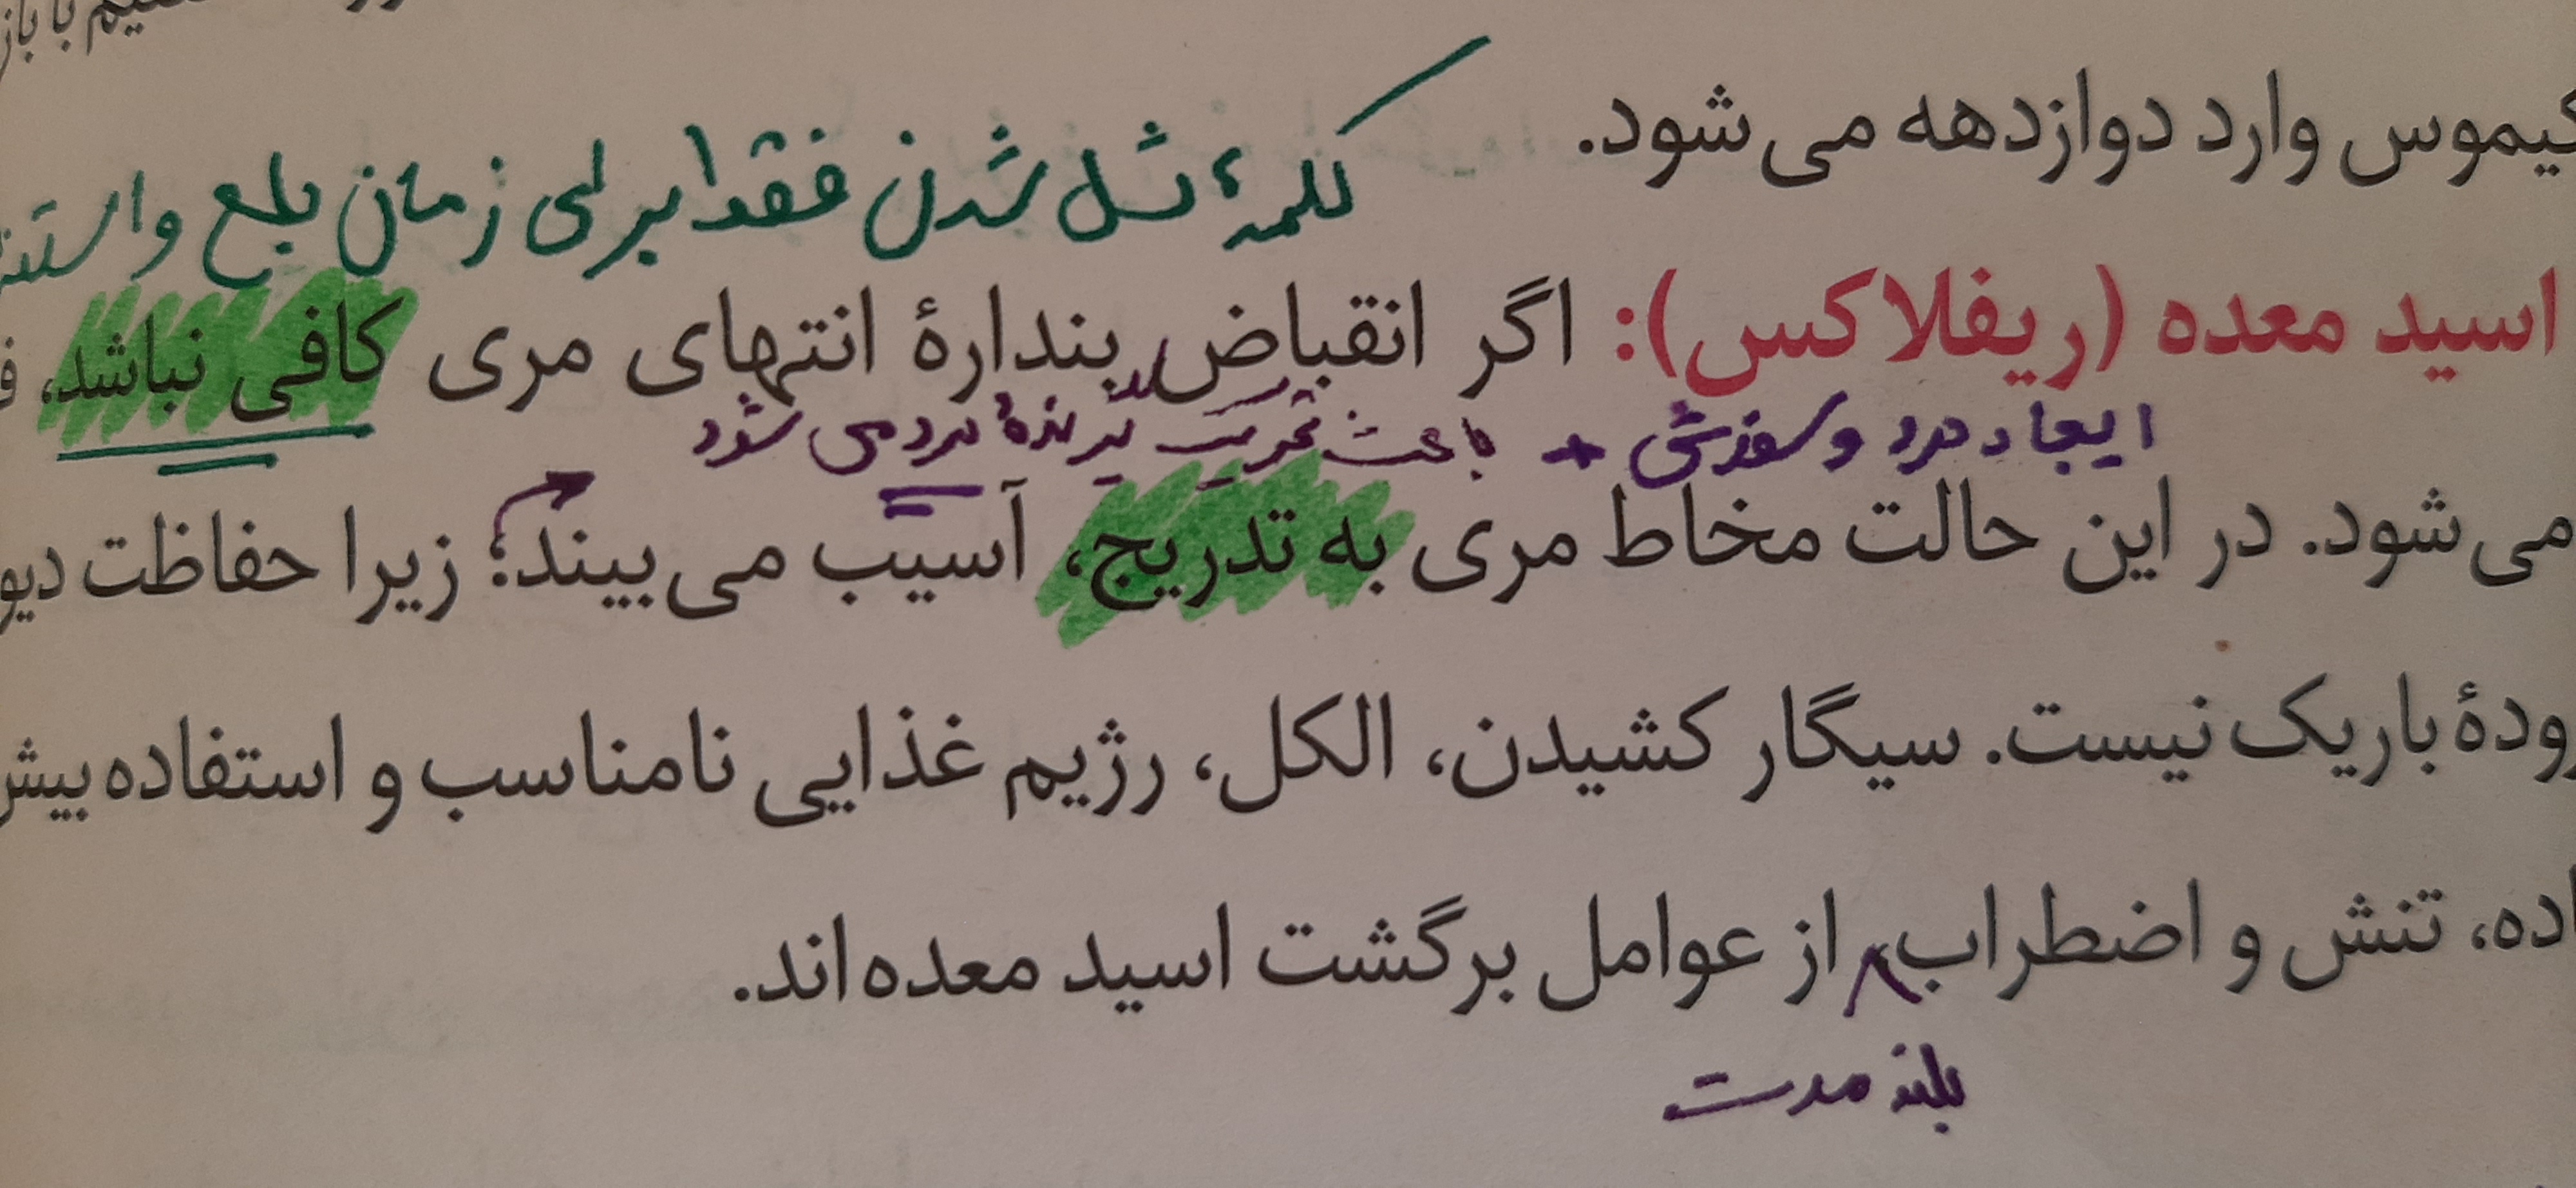 کیموس وارد دوازدهه می‌شود.
کلمهٔ شل شدن فقط برای زمان بلع و
اسید معده (ریفلاکس): اگر انقباض بندارهٔ انتهای مری کافی نباشد،
ایجاد درد و سوزش + باعث تحریک گیرندهٔ درد می شود
می‌شود. در این حالت مخاط مری به تدریج، آسیب می‌بیند؛ زیرا حفاظت
رودهٔ باریک نیست. سیگار کشیدن، الکل، رژیم غذایی نامناسب و استفاده بیش
تنش و اضطراب از عوامل برگشت اسید معده‌اند.
بلند مدت